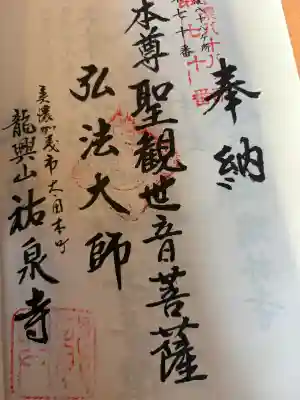 奉納
七十番
本尊聖観世音菩薩
弘法大師
美濃加茂市太田本町
龍興山祐泉寺